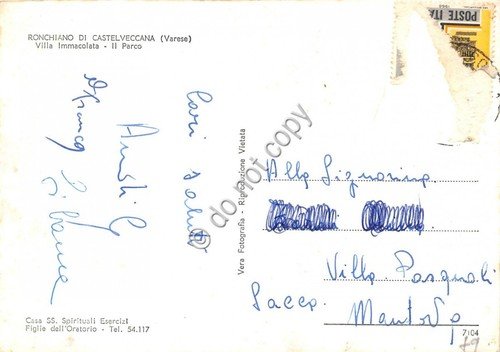 RONCHIANO DI CASTELVECCANA (Varese)
Villa Immacolata - Il Parco
POSTE ITA
Cari saluti
Vera Fotografia - Riproduzione Vietata
do not copy
Alla Signorina
Villa Pasquali
Sacca. Mantova
Casa SS. Spirituali Esercizi
Figlie dell'Oratorio - Tel. 54.117
7104